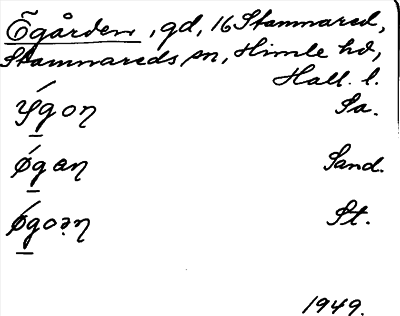 Ögården, gd, 16 Stamnared,
Stamnareds sn, Himle hd,
Hall. l.
Sa.
øgan Sand.
St.
1949.